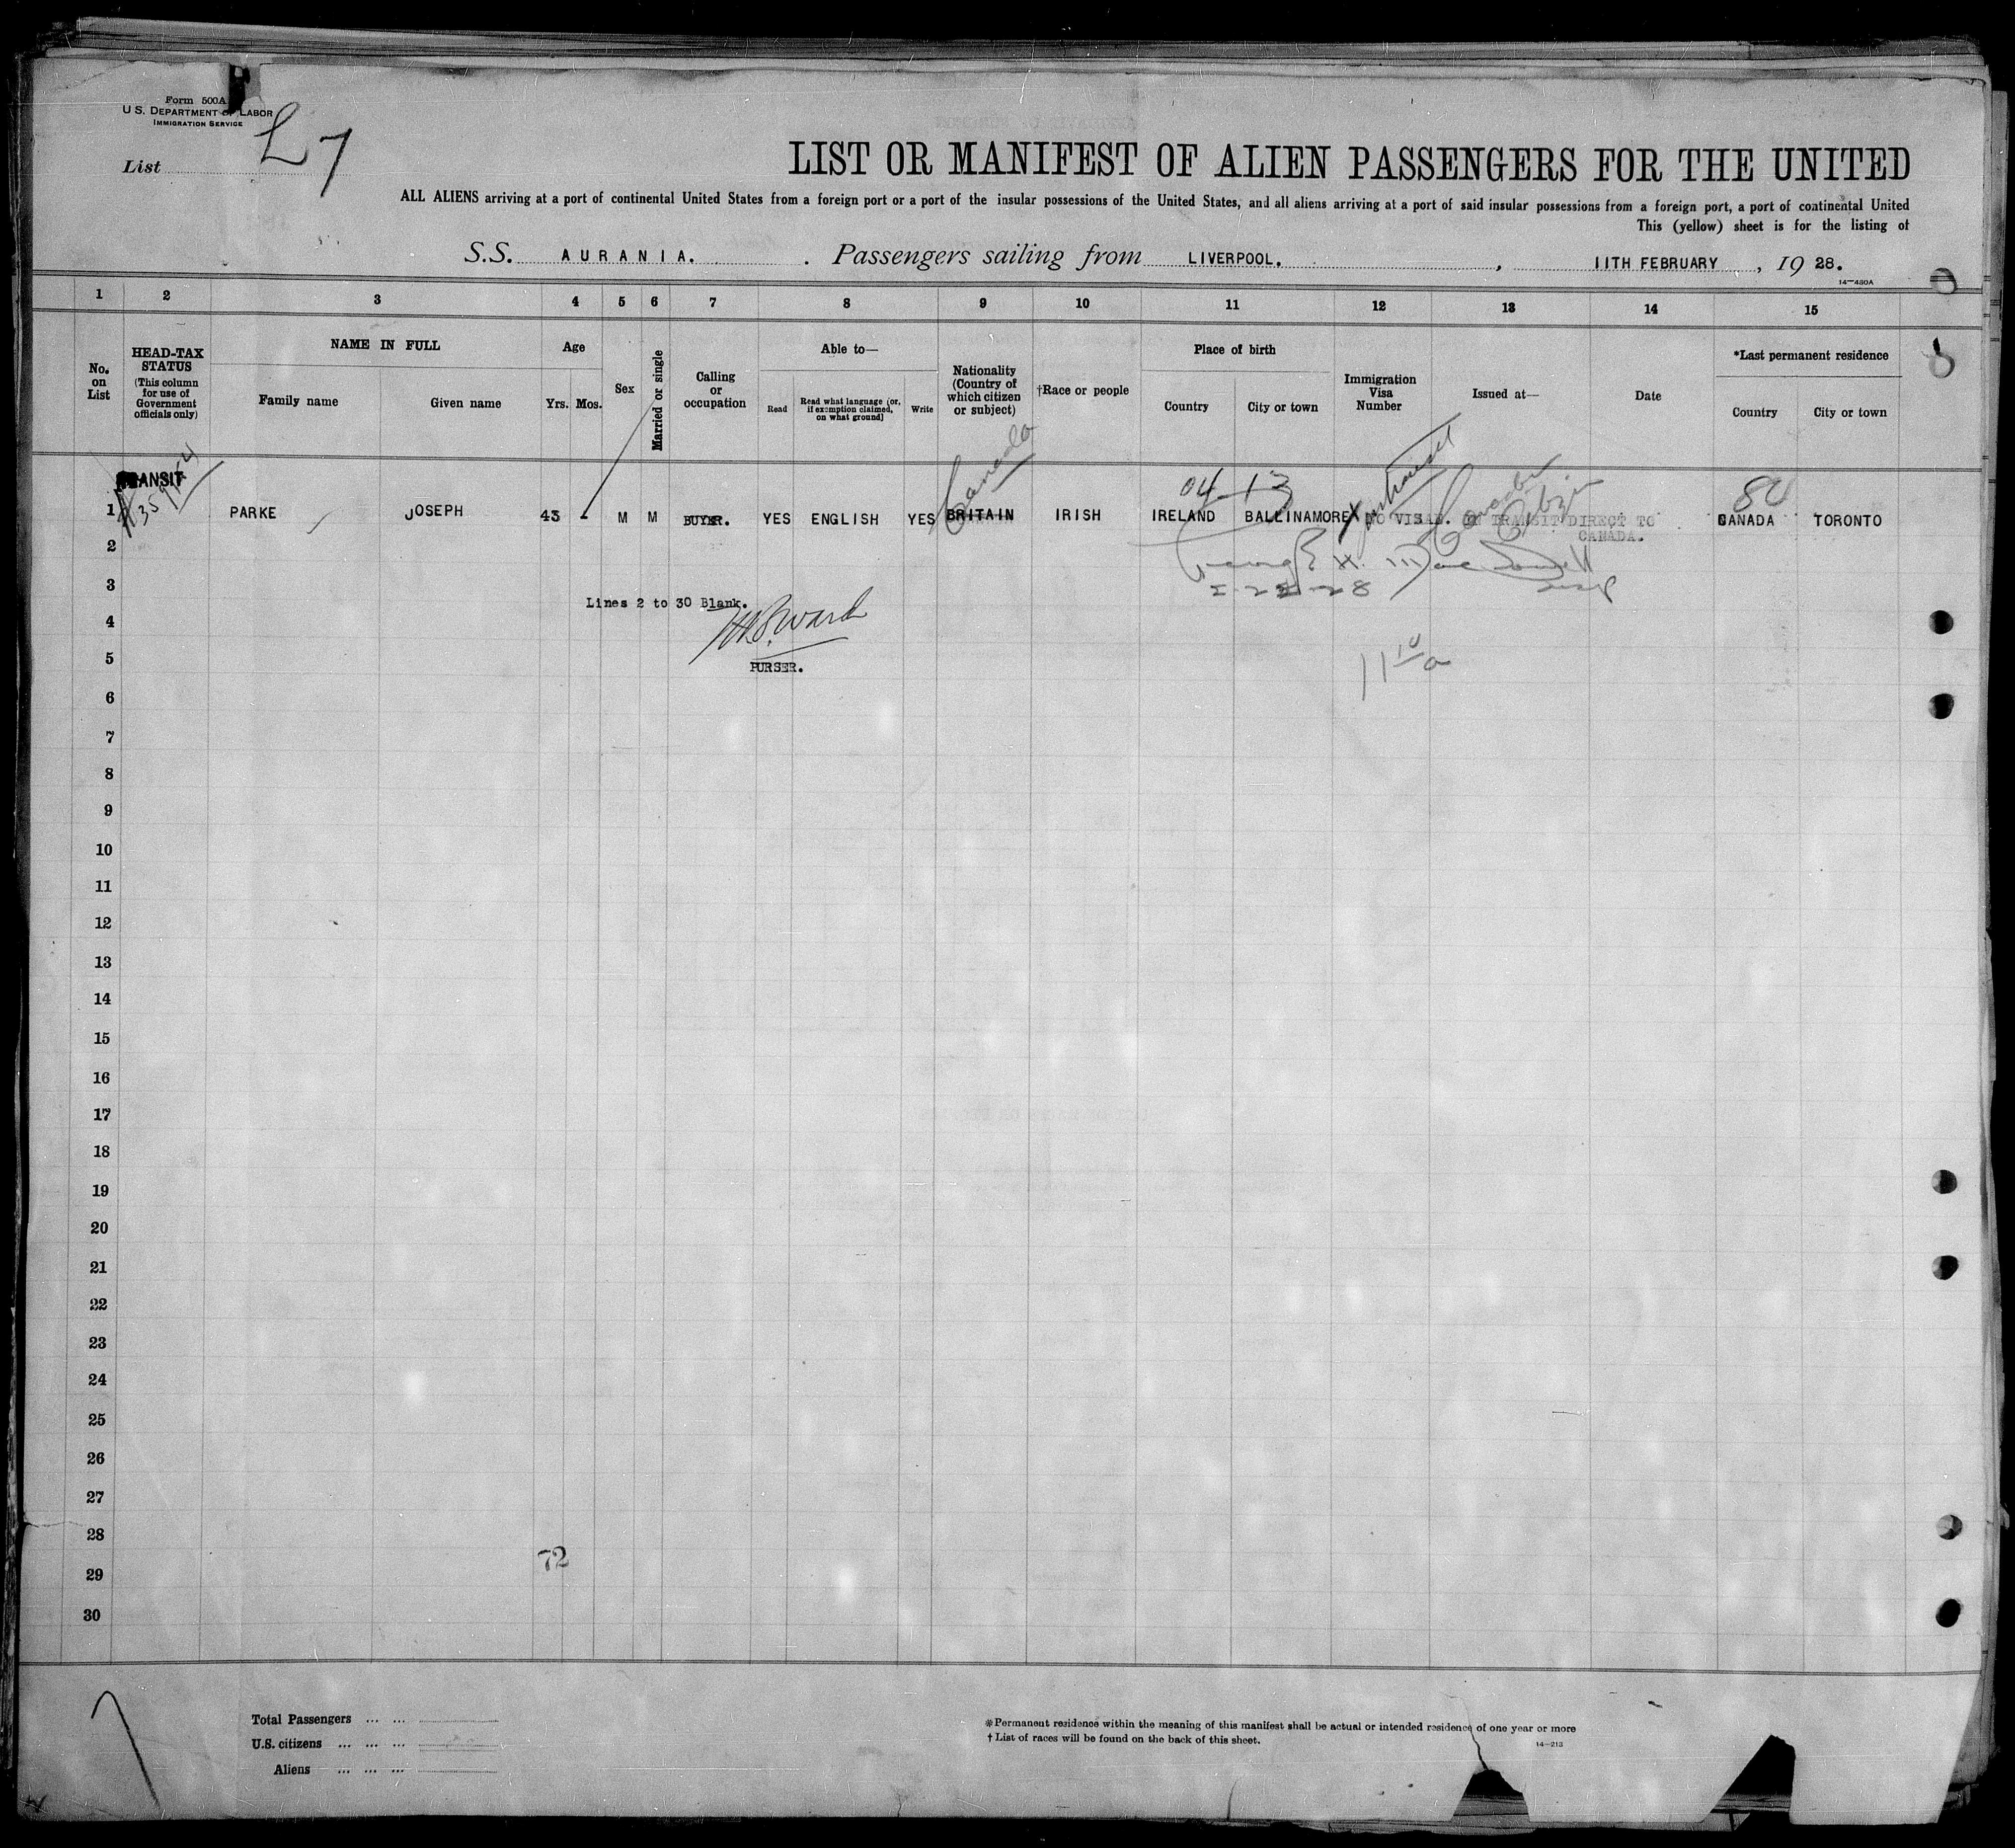 Form 500A
U. S. DEPARTMENT OF LABOR
IMMIGRATION SERVICE
List L 7
LIST OR MANIFEST OF ALIEN PASSENGERS FOR THE UNITED
ALL ALIENS arriving at a port of continental United States from a foreign port or a port of the insular possessions of the United States, and all aliens arriving at a port of said insular possessions from a foreign port, a port of continental United
This (yellow) sheet is for the listing of
S.S. AURANIA. Passengers sailing from LIVERPOOL. , 11TH FEBRUARY , 19 28.
14—480A
1 2 3 4 5 6 7 8 9 10 11 12 13 14 15
No. on List
HEAD-TAX STATUS (This column for use of Government officials only)
NAME IN FULL
Family name
Given name
Age
Yrs. Mos.
Sex
Married or single
Calling or occupation
Able to—
Read
Read what language [or, if exemption claimed, on what ground]
Write
Nationality (Country of which citizen or subject)
†Race or people
Place of birth
Country
City or town
Immigration Visa Number
Issued at—
Date
*Last permanent residence
Country
City or town
Canada
TRANSIT
04-13
Canadian Citizen
80
1 PARKE JOSEPH 43 - M M BUYER. YES ENGLISH YES BRITAIN IRISH IRELAND BALLINAMORE NO VISAD. IN TRANSIT DIRECT TO CANADA. CANADA TORONTO
2
George H. MacDonell
3
2-22-28 Insp
Lines 2 to 30 Blank.
4
Ward
5
PURSER.
11 10/a
6
7
8
9
10
11
12
13
14
15
16
17
18
19
20
21
22
23
24
25
26
27
28
72
29
30
Total Passengers ... ...
U.S. citizens ... ... ...
Aliens ... ... ...
*Permanent residence within the meaning of this manifest shall be actual or intended residence of one year or more
† List of races will be found on the back of this sheet.
14—213